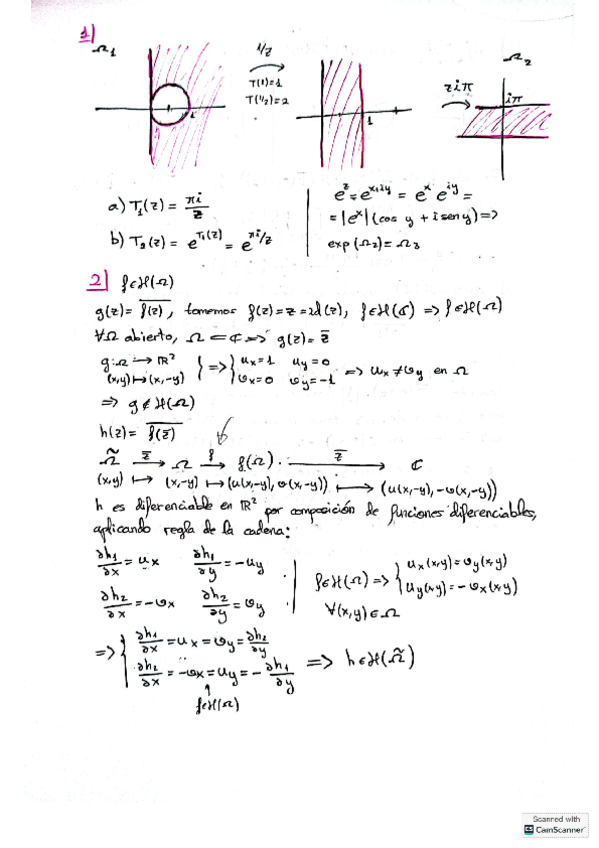 1)
Ω₁
1/z
T(1)=1
T(1/2)=2
1
Ω₂
ziπ
iπ
a) T₁(z) = πi/z
b) T₂(z) = e^{T₁(z)} = e^{πi/z}
e^z = e^{x+iy} = e^x e^{iy} =
= |e^x| (cos y + i sen y) =>
exp(Ω₂) = Ω₃
2) f∈H(Ω)
g(z) = \overline{f(z)}, tomemos f(z) = z = id(z), f∈H(ℂ) => f∈H(Ω)
∀Ω abierto, Ω ⊂ ℂ => g(z) = \overline{z}
g: Ω → ℝ² } => { u_x = 1 u_y = 0
(x,y) ↦ (x,-y) v_x = 0 v_y = -1 => u_x ≠ v_y en Ω
=> g ∉ H(Ω)
h(z) = \overline{f(\overline{z})}
Ω̃ →^{\overline{z}} Ω →^{f} f(Ω) →^{\overline{z}} ℂ
(x,y) ↦ (x,-y) ↦ (u(x,-y), v(x,-y)) ↦ (u(x,-y), -v(x,-y))
h es diferenciable en ℝ² por composición de funciones diferenciables,
aplicando regla de la cadena:
∂h₁/∂x = u_x ∂h₁/∂y = -u_y
∂h₂/∂x = -v_x ∂h₂/∂y = v_y
f∈H(Ω) => { u_x(x,y) = v_y(x,y)
u_y(x,y) = -v_x(x,y)
∀(x,y)∈Ω
=> { ∂h₁/∂x = u_x = v_y = ∂h₂/∂y
∂h₂/∂x = -v_x = u_y = -∂h₁/∂y => h∈H(Ω̃)
f∈H(Ω)
Scanned with
CamScanner